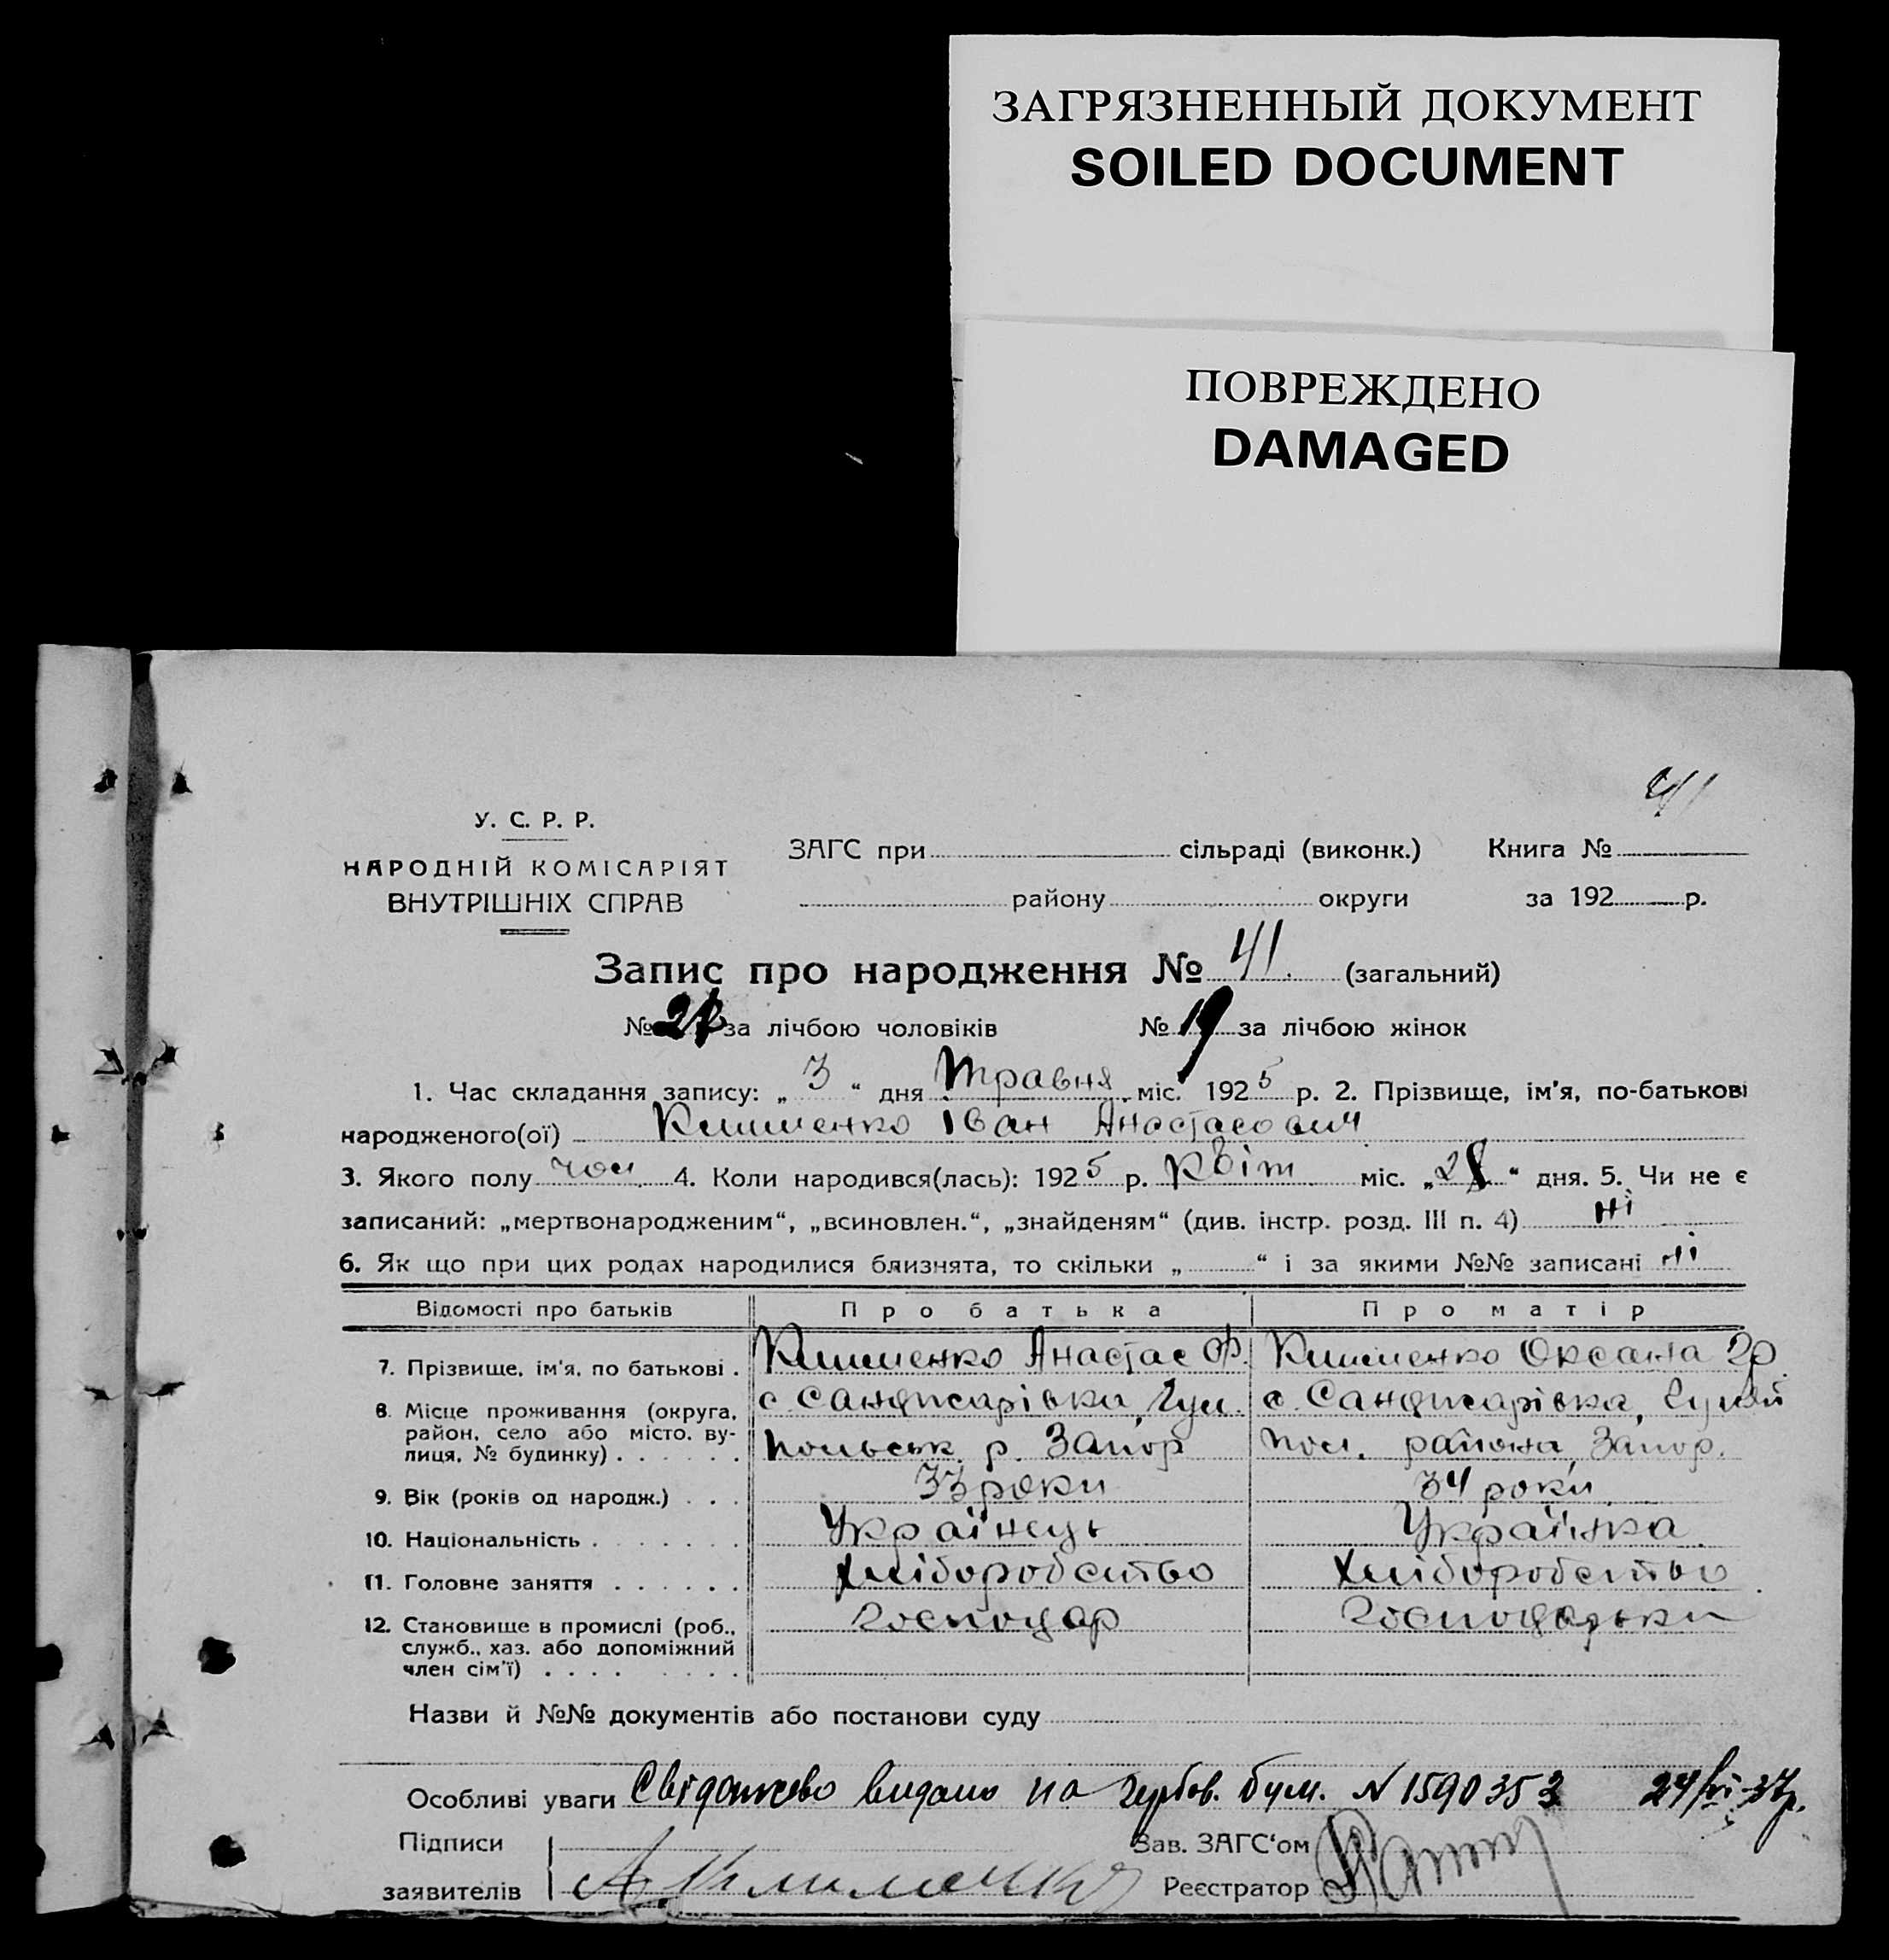 ЗАГРЯЗНЕННЫЙ ДОКУМЕНТ
SOILED DOCUMENT
ПОВРЕЖДЕНО
DAMAGED
41
У. С. Р. Р.
НАРОДНІЙ КОМІСАРІЯТ
ВНУТРІШНІХ СПРАВ
ЗАГС при сільраді (виконк.) Книга №
району округи за 192 р.
Запис про народження № 41. (загальний)
№ за лічбою чоловіків № 19 за лічбою жінок
1. Час складання запису: „ 3 “ дня Травня міс. 1925 р. 2. Прізвище, ім'я, по-батькові
народженого(ої) Клименко Іван Анастасович
3. Якого полу чол. 4. Коли народився(лась): 1925 р. Квіт. міс. „28“ дня. 5. Чи не є
записаний: „мертвонародженим“, „всиновлен.“, „знайденям“ (див. інстр. розд. III п. 4) ні
6. Як що при цих родах народилися близнята, то скільки „ “ і за якими №№ записані ні
Відомості про батьків Про батька Про матір
7. Прізвище, ім'я, по батькові . Клименко Анастас Ф. Клименко Оксана Гр.
8. Місце проживання (округа, район, село або місто, вулиця, № будинку) . . . . . . с. Санджарівка, Гул. с. Санджарівка, Гуляй
польськ. р. Запор пол. района Запор.
9. Вік (років од народж.) . . . 33 роки 34 роки.
10. Національність . . . . . . . Українець Українка
11. Головне заняття . . . . . . Хліборобство Хліборобство
12. Становище в промислі (роб., служб., хаз. або допоміжний член сім'ї) . . . . . . . . Господар Господарька
Назви й №№ документів або постанови суду
Особливі уваги Свідоцтво видано на гербов. бум. N 1590353 24/VI-37р.
Підписи Зав. ЗАГС'ом
заявителів А. Клименко Реєстратор